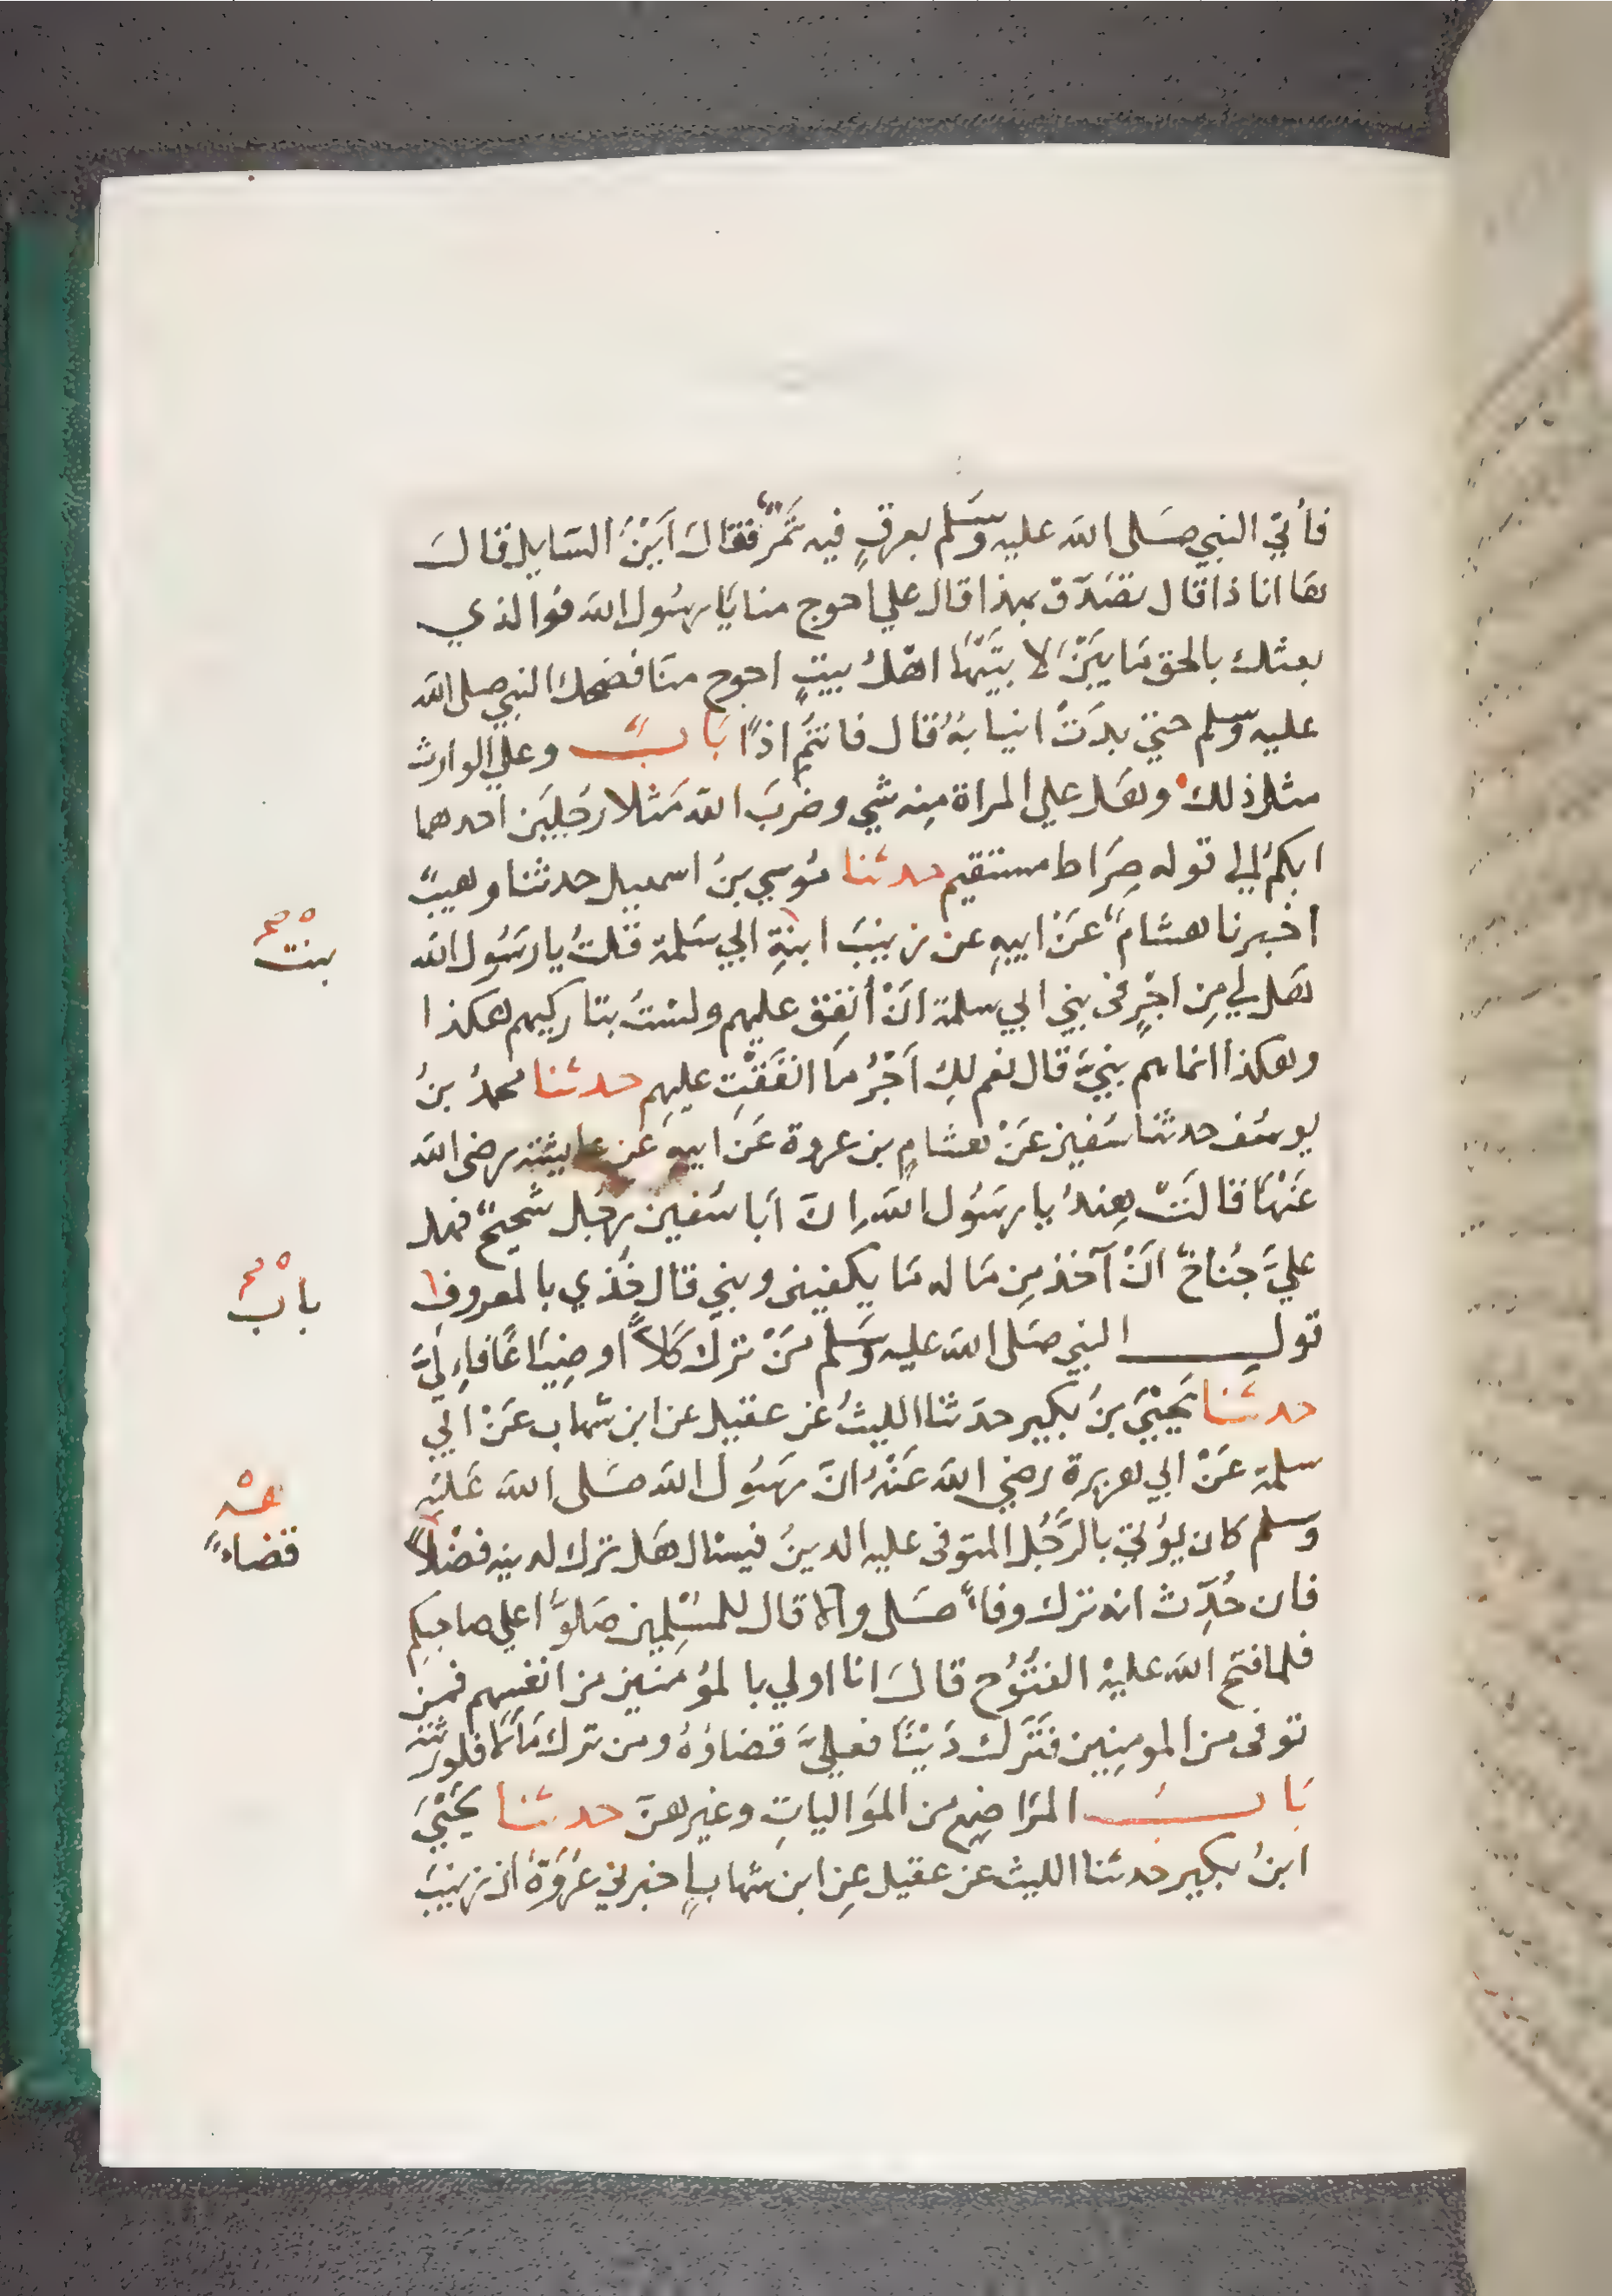 فأتي النبي صَلى الله عليه وَسَلم بعرقٍ فيه تَمْرٌ فقَالَ اَيْنَ السَايل قالَ
هَا انا ذا قال تصَدّق بهذا قال علي احوج منا يَا رسُول الله فوَالذي
بعثك بالحق مَا بَيْنَ لابتَيْهَا اهْلُ بيتٍ احوج منَّا فضحك النبي صلى الله
عليه وسلم حتي بدَتْ انيابهُ قال فانتُم اذًا بَابٌ وعلي الوارث
مثل ذلك وهَل علي المراة مِنه شي وضربَ الله مَثلا رَجلَين احدهما
ابكمُ الي قوله صِرَاط مستقيم حدثنا مُوسي بنُ اسمعيل حدثنا وهيبٌ
اخبرنا هشامٌ عَنْ ابيهِ عن زينبَ ابنةِ ابي سَلمة قلتُ يا رسَوُل الله
هَل لي مِن اجْرٍ في بني ابي سلمة انْ أُنفِق عليهم ولسْتُ بتاركيهم هكذا
وهكذا انما هم بنيَّ قال نعم لكِ اَجْرُ مَا انفَقْتِ عليهِم حدثنا محمدُ بنُ
يوسُف حدثنا سُفين عَنْ هشامٍ بن عروة عَن ابيهِ عَن عايشة رضى الله
عَنْهَا قالَتْ هِندُ يا رسُول الله اِنّ اَبا سُفين رجُل شَحيحٌ فهل
عليَّ جُناحٌ اَنْ آخذ مِن مَاله مَا يكفينى وبني قال خُذي بالمعروف
قول النبي صَلى الله عليه وَسَلم مَنْ ترك كَلاًّ او ضِيَاعًا فاِليَّ
حدثنا يَحْيَي بنُ بُكير حدَثنا الليثُ عن عقيل عن ابن شهاب عَنْ ابي
سلمة عَنْ ابي هريرة رضي الله عَنْهُ انّ رسُول الله صَلى الله عَليْه
وَسلم كان يُؤتي بالرَّجُل المتوفى عليه الدينُ فيسال هَل ترك لدينه فضْلاً
فان حُدِّث انه ترك وفاءً صَلى والا قال للمسْلِمين صَلوُّا علي صاحبكم
فلما فتح الله عليْه الفتُوُح قالَ انا اولي بالمؤُمنين من انفسهم فمن
توفى من المومنِين فَتَرَك دَيْنًا فعليَّ قضاؤُهُ ومن ترك مَالًا فلورثته
بَابُ المَراضِع من المَوَالياتِ وغيرهنّ حدثنا يَحْيَيَ
ابنُ بكير حدثنا الليث عن عقيل عنِ ابن شهابٍ اخبرني عُرْوَةُ ان زينبَ
بنت
باب
قضاءً